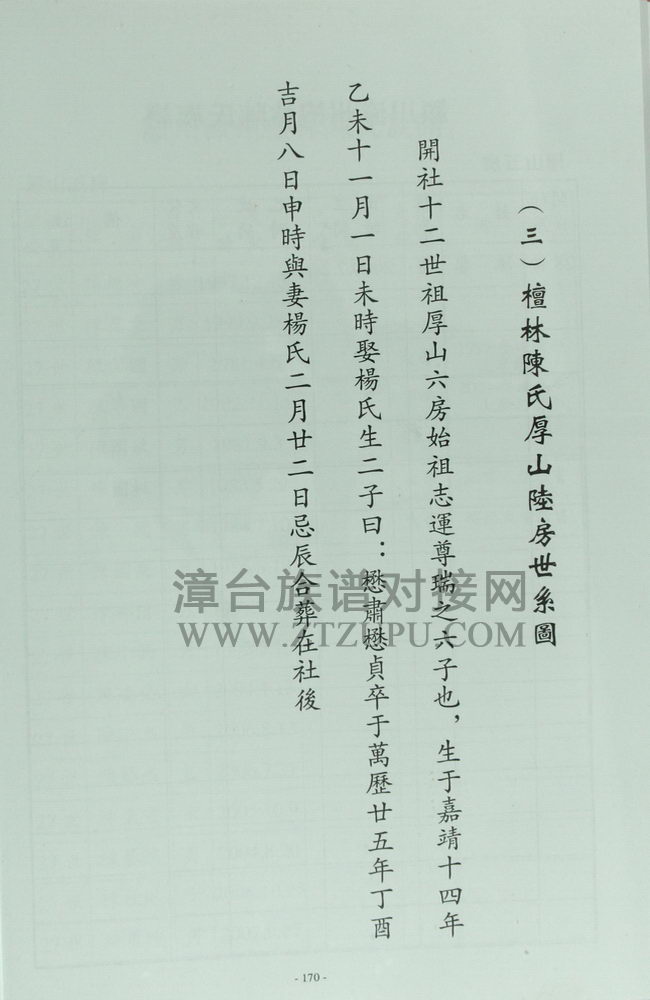 （三）檀林陳氏厚山陸房世系圖
開社十二世祖厚山六房始祖志運尊瑞之六子也，生于嘉靖十四年
乙未十一月一日未時娶楊氏生二子曰：懋肅懋貞卒于萬歷廿五年丁酉
吉月八日申時與妻楊氏二月廿二日忌辰合葬在社後
漳台族谱对接网
WWW.ZTZUPU.COM
- 170 -